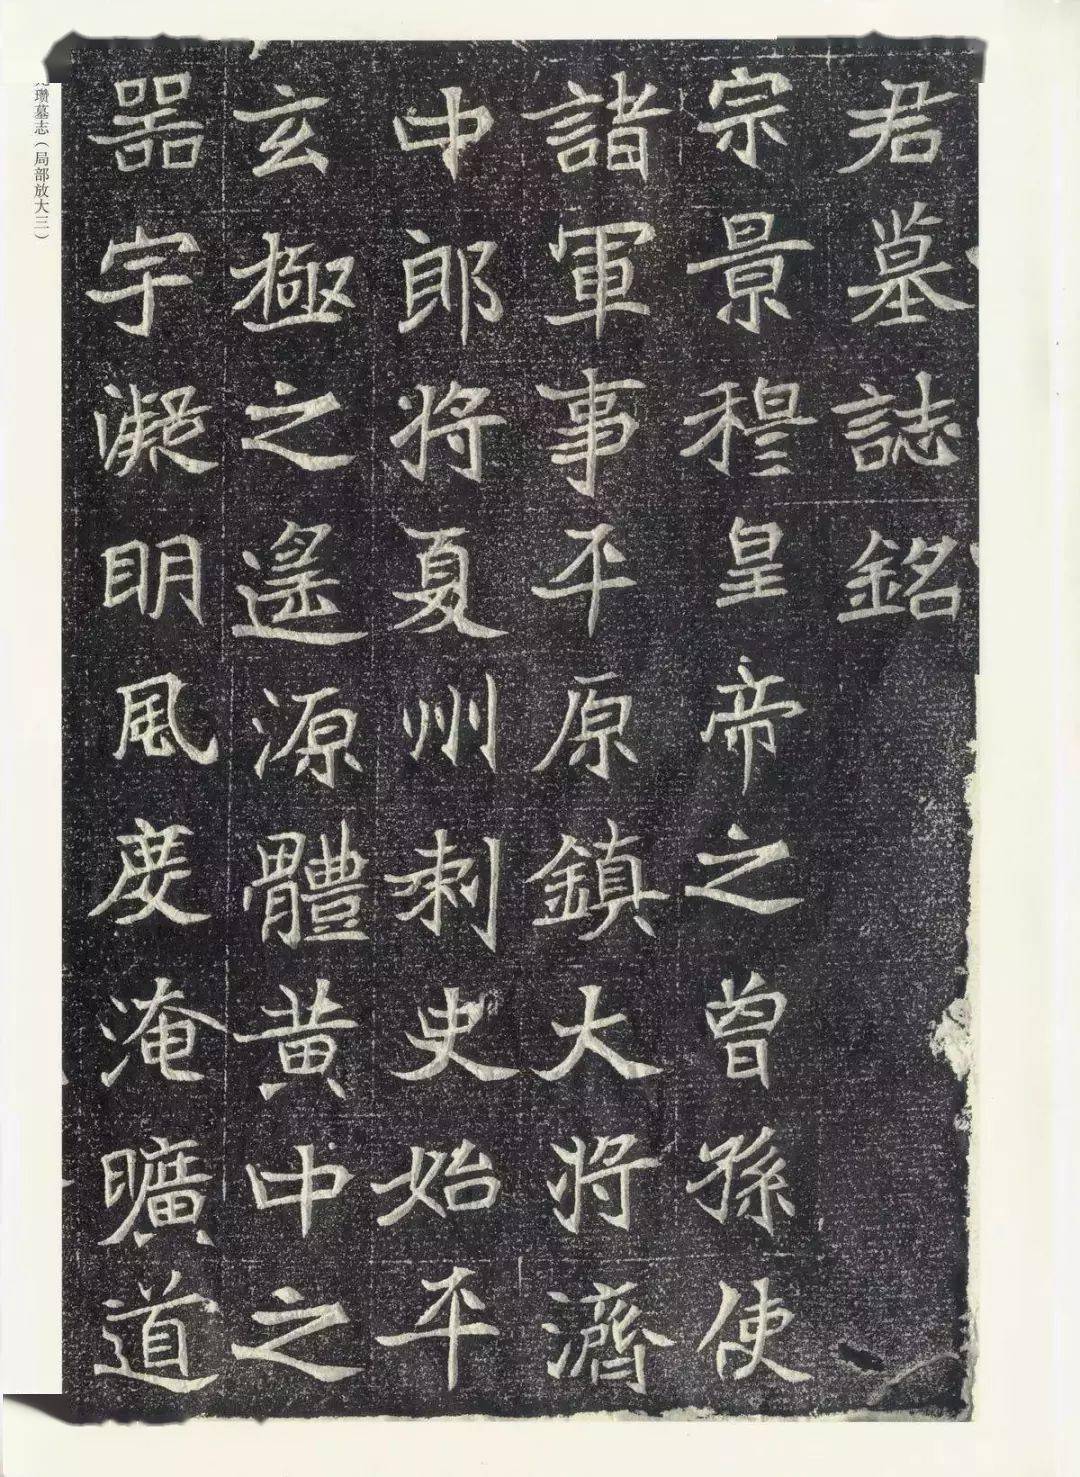 君墓誌銘
宗景穆皇帝之曾孫使
諸軍事平原鎮大將濟
中郎將夏州刺史始平
玄極之遥源體黃中之
器宇凝明風度淹曠道
瓒墓志（局部放大三）